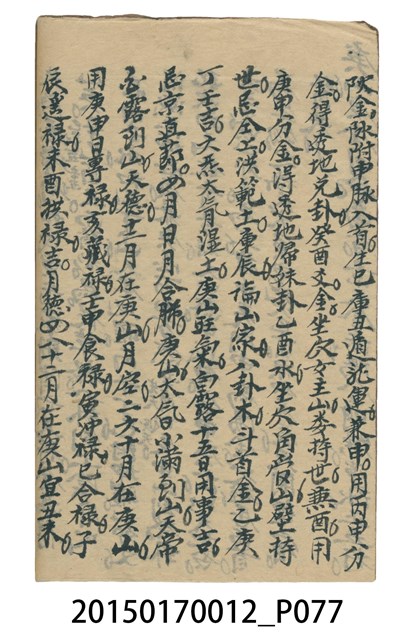 陝金。陎附申脉入首生巳庫丑遁龍運兼申。用丙申分
金得透地兌卦癸酉爻金坐穴玄主山婁持世無酉用
庚申分金。得透地歸妹卦乙酉水坐穴用管山壁持
世忌仝上洪範土庫辰論山家八卦木斗首金乙庚
丁壬吉大炁太旬溼土庚山旺氣白露十五日用事吉
忌京直節四月日月合肺庚山太旬小滿到山天帝
白露到山天德十二月在庚山月空二六十月在庚山
用庚申日專祿亥藏祿壬申食祿寅沖祿巳合祿子
辰遙祿未酉拱祿吉月德四八十二月在庚山宜丑未
20150170012_P077